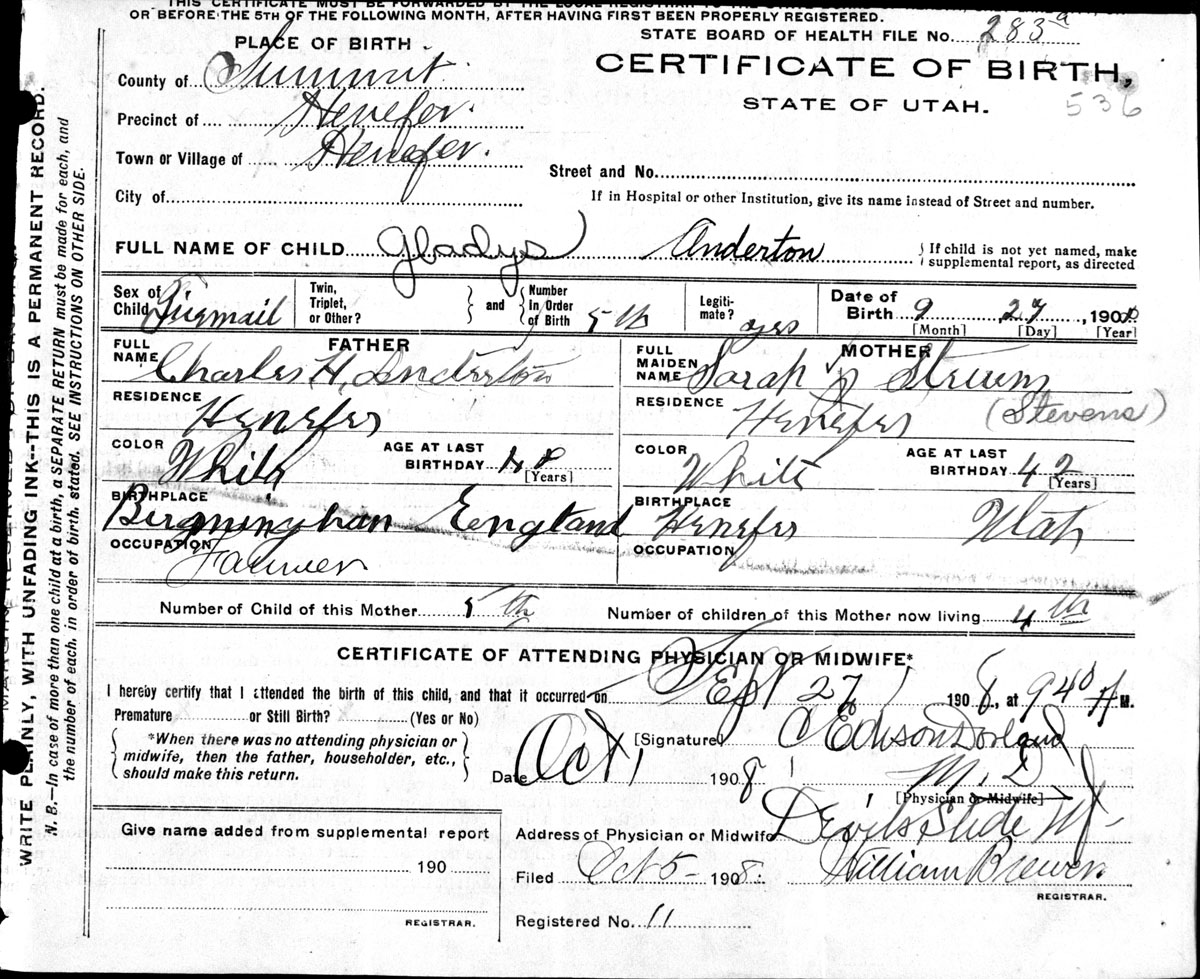 THIS CERTIFICATE MUST BE FORWARDED BY THE LOCAL REGISTRAR TO THE
OR BEFORE THE 5TH OF THE FOLLOWING MONTH, AFTER HAVING FIRST BEEN PROPERLY REGISTERED.
STATE BOARD OF HEALTH FILE No. 283 a
PLACE OF BIRTH
CERTIFICATE OF BIRTH,
STATE OF UTAH.
536
County of Summit.
Precinct of Henefer.
Town or Village of Henefer.
Street and No.
City of
If in Hospital or other Institution, give its name instead of Street and number.
FULL NAME OF CHILD Gladys Anderton
If child is not yet named, make supplemental report, as directed
Sex of Child
Twin, Triplet, or Other?
and
Number In Order of Birth 5 th
Legitimate? yes
Date of Birth 9 27, 190
[Month] [Day] [Year]
FATHER
MOTHER
FULL NAME Charles H. Anderton
FULL MAIDEN NAME Sarah
(Stevens)
RESIDENCE Henefer
RESIDENCE Henefer
COLOR White
AGE AT LAST BIRTHDAY
[Years]
COLOR White
AGE AT LAST BIRTHDAY 42
[Years]
BIRTHPLACE Birgminghan Eengland
BIRTHPLACE Henefer Utah
OCCUPATION
OCCUPATION
Number of Child of this Mother 5 th
Number of children of this Mother now living 4 th
CERTIFICATE OF ATTENDING PHYSICIAN OR MIDWIFE*
I hereby certify that I attended the birth of this child, and that it occurred on Sept 27, 1908, at 9 40 M.
Premature or Still Birth? (Yes or No)
*When there was no attending physician or midwife, then the father, householder, etc., should make this return.
[Signature] C Edison Dorland
M. D
[Physician or Midwife]
Date Oct, 1908
Give name added from supplemental report
190
REGISTRAR.
Address of Physician or Midwife Devils Slide
Filed Oct 5- 1908.
William Brewer
REGISTRAR.
Registered No. 11
WRITE PLAINLY, WITH UNFADING INK--THIS IS A PERMANENT RECORD.
N. B.—In case of more than one child at a birth, a SEPARATE RETURN must be made for each, and
the number of each, in order of birth, stated. SEE INSTRUCTIONS ON OTHER SIDE.